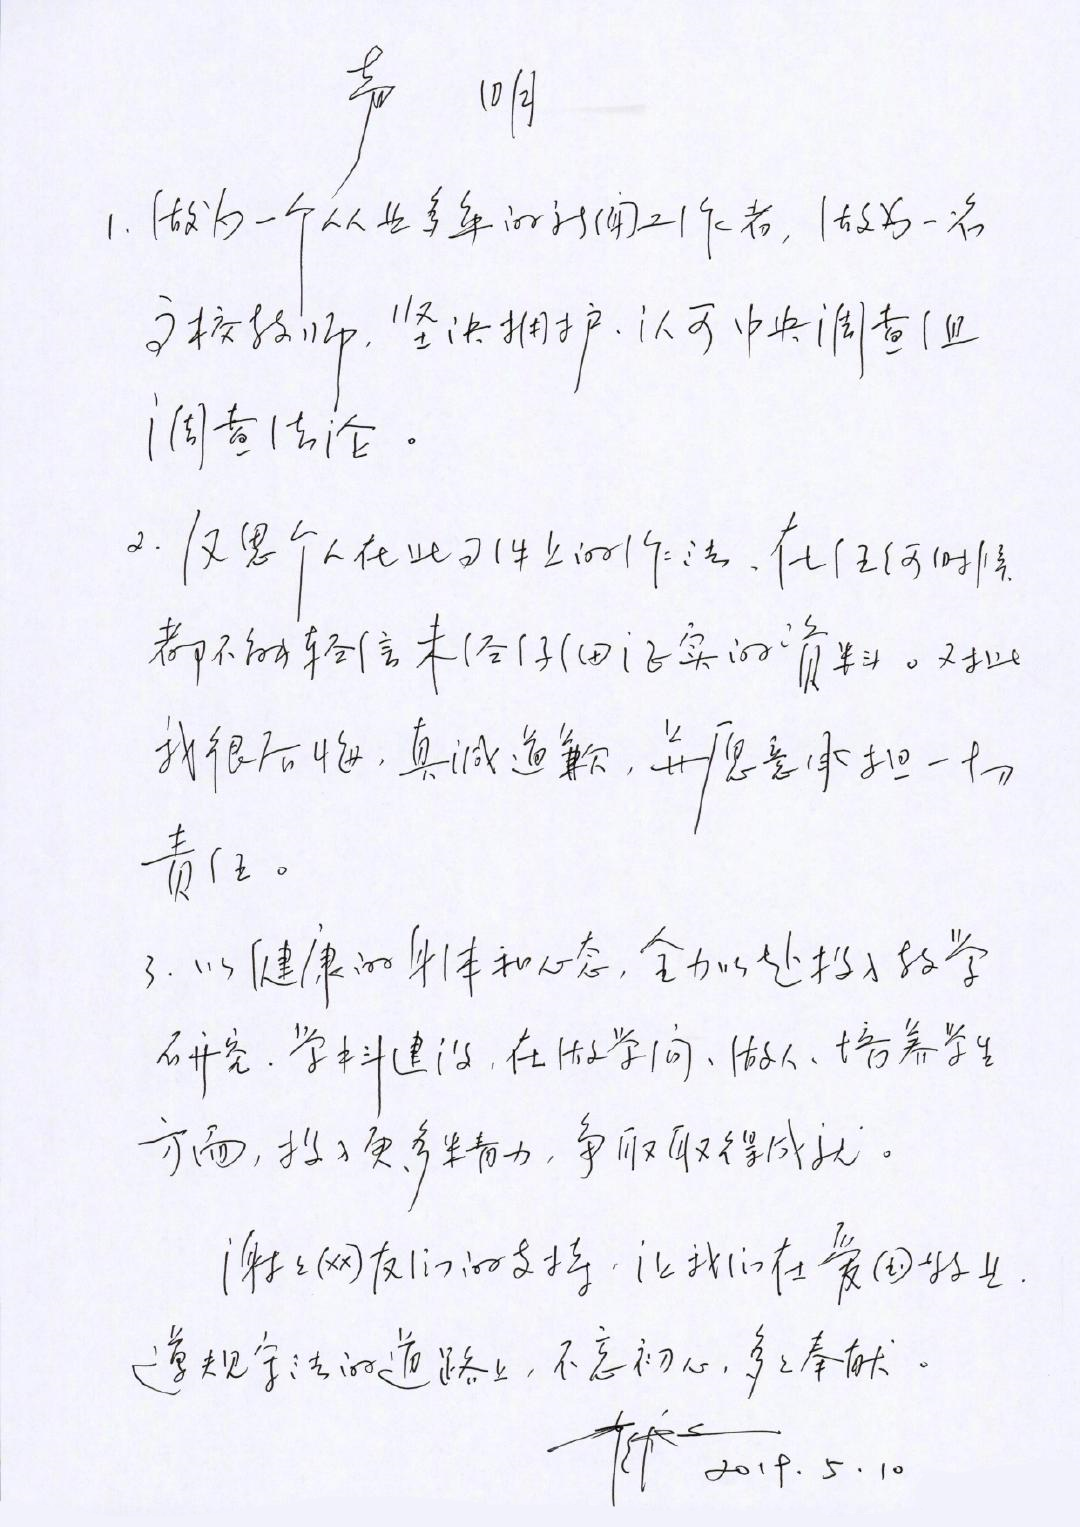 声 明
1. 做为一个从业多年的新闻工作者, 做为一名
高校教师, 坚决拥护、认可中央调查组
调查结论。
2. 反思个人在此事件上的作法、在任何时候
都不能轻信未经仔细证实的资料。对此
我很后悔, 真诚道歉, 并愿意承担一切
责任。
3. 以健康的身体和心态, 全力以赴投入教学
研究、学科建设, 在做学问、做人、培养学生
方面, 投入更多精力, 争取取得成就。
谢谢网友们的支持, 让我们在爱国敬业、
遵规守法的道路上, 不忘初心, 多多奉献。
2019.5.10